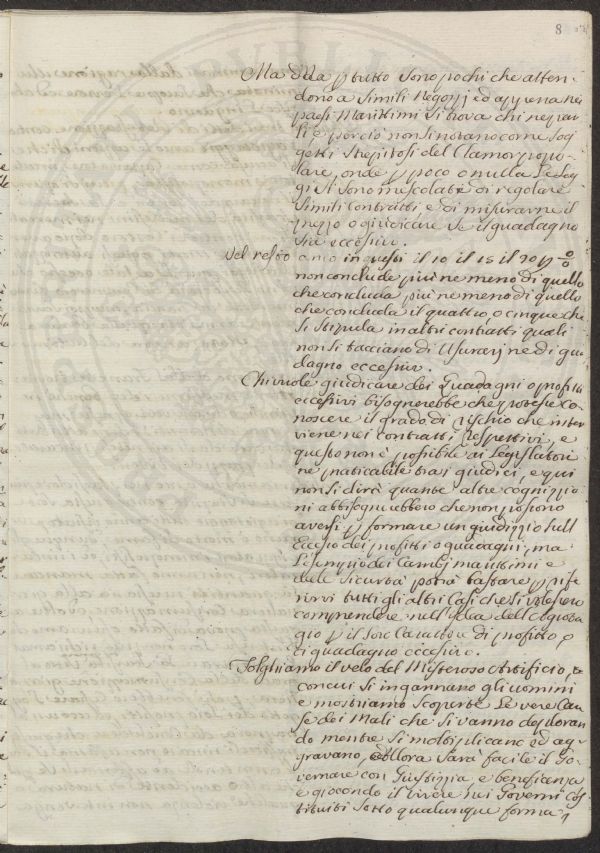 8
Ma da p tutto sono pochi che atten-
dono a simili Negozj ed appena nei
paesi Marittimi si trova chi ne par-
li e perciò non si notano come sog-
getti strepitosi del Clamor popo-
lare, onde p poco o nulla le Leg-
gi si sono mescolate di regolare
simili contratti e di misurarne il
prezzo o giudicare se il guadagno
sia eccessivo.
Nel resto anco in questi il 10 il 15 il 20 p %
non conclude più ne meno di quello
che concluda più ne meno di quello
che concluda il quattro, o cinque che
si stipula in altri contratti quali
non si tacciano di Usurarj ne di gua
dagno eccessivo.
Chi vuole giudicare dei Guadagni o profitti
eccessivi bisognerebbe che potesse co-
noscere il grado di rischio che inter
viene nei contratti respettivi, e
questo non è possibile ai Legislatori
ne praticabile tra i giudici, e qui
non si dirà quante altre cognizzio
ni abbisognerebbero che non possono
aversi p formare un giudizzio sull
Eccesso dei profitti o guadagni, ma
l'esempio dei Cambj marittimi e
delle Sicurtà potrà bastare p rife
rirvi tutti gli altri Casi che si volessero
comprendere nell'idea dell'Aggiotag
gio p il solo Carattere di profitto o
di guadagno eccessivo.
Tolghiamo il velo del Misterioso Artificio,
con cui si ingannano gli uomini
e mostriamo scoperte le vere Cau
se dei Mali che si vanno deploran
do mentre si moltiplicano ed ag
gravano, allora sarà facile il Go
vernare con Giustizia e beneficenza
e giocondo il vivere nei Governi Cos
tituiti sotto qualunque forma